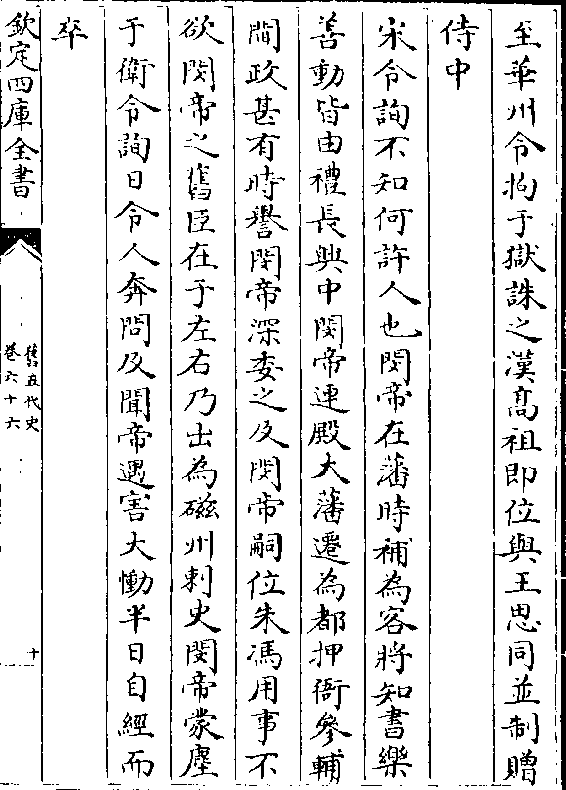 至華州令拘于獄誅之漢高祖即位與王思同並制贈
侍中
宋令詢不知何許人也閔帝在藩時補為客將知書樂
善動皆由禮長興中閔帝連殿大藩遷為都押衙參輔
閫政甚有時譽閔帝深委之及閔帝嗣位朱馮用事不
欲閔帝之舊臣在于左右乃出為磁州刺史閔帝蒙塵
于衛令詢日令人奔問及聞帝遇害大慟半日自經而
卒
欽定四庫全書
舊五代史
卷六十六
十